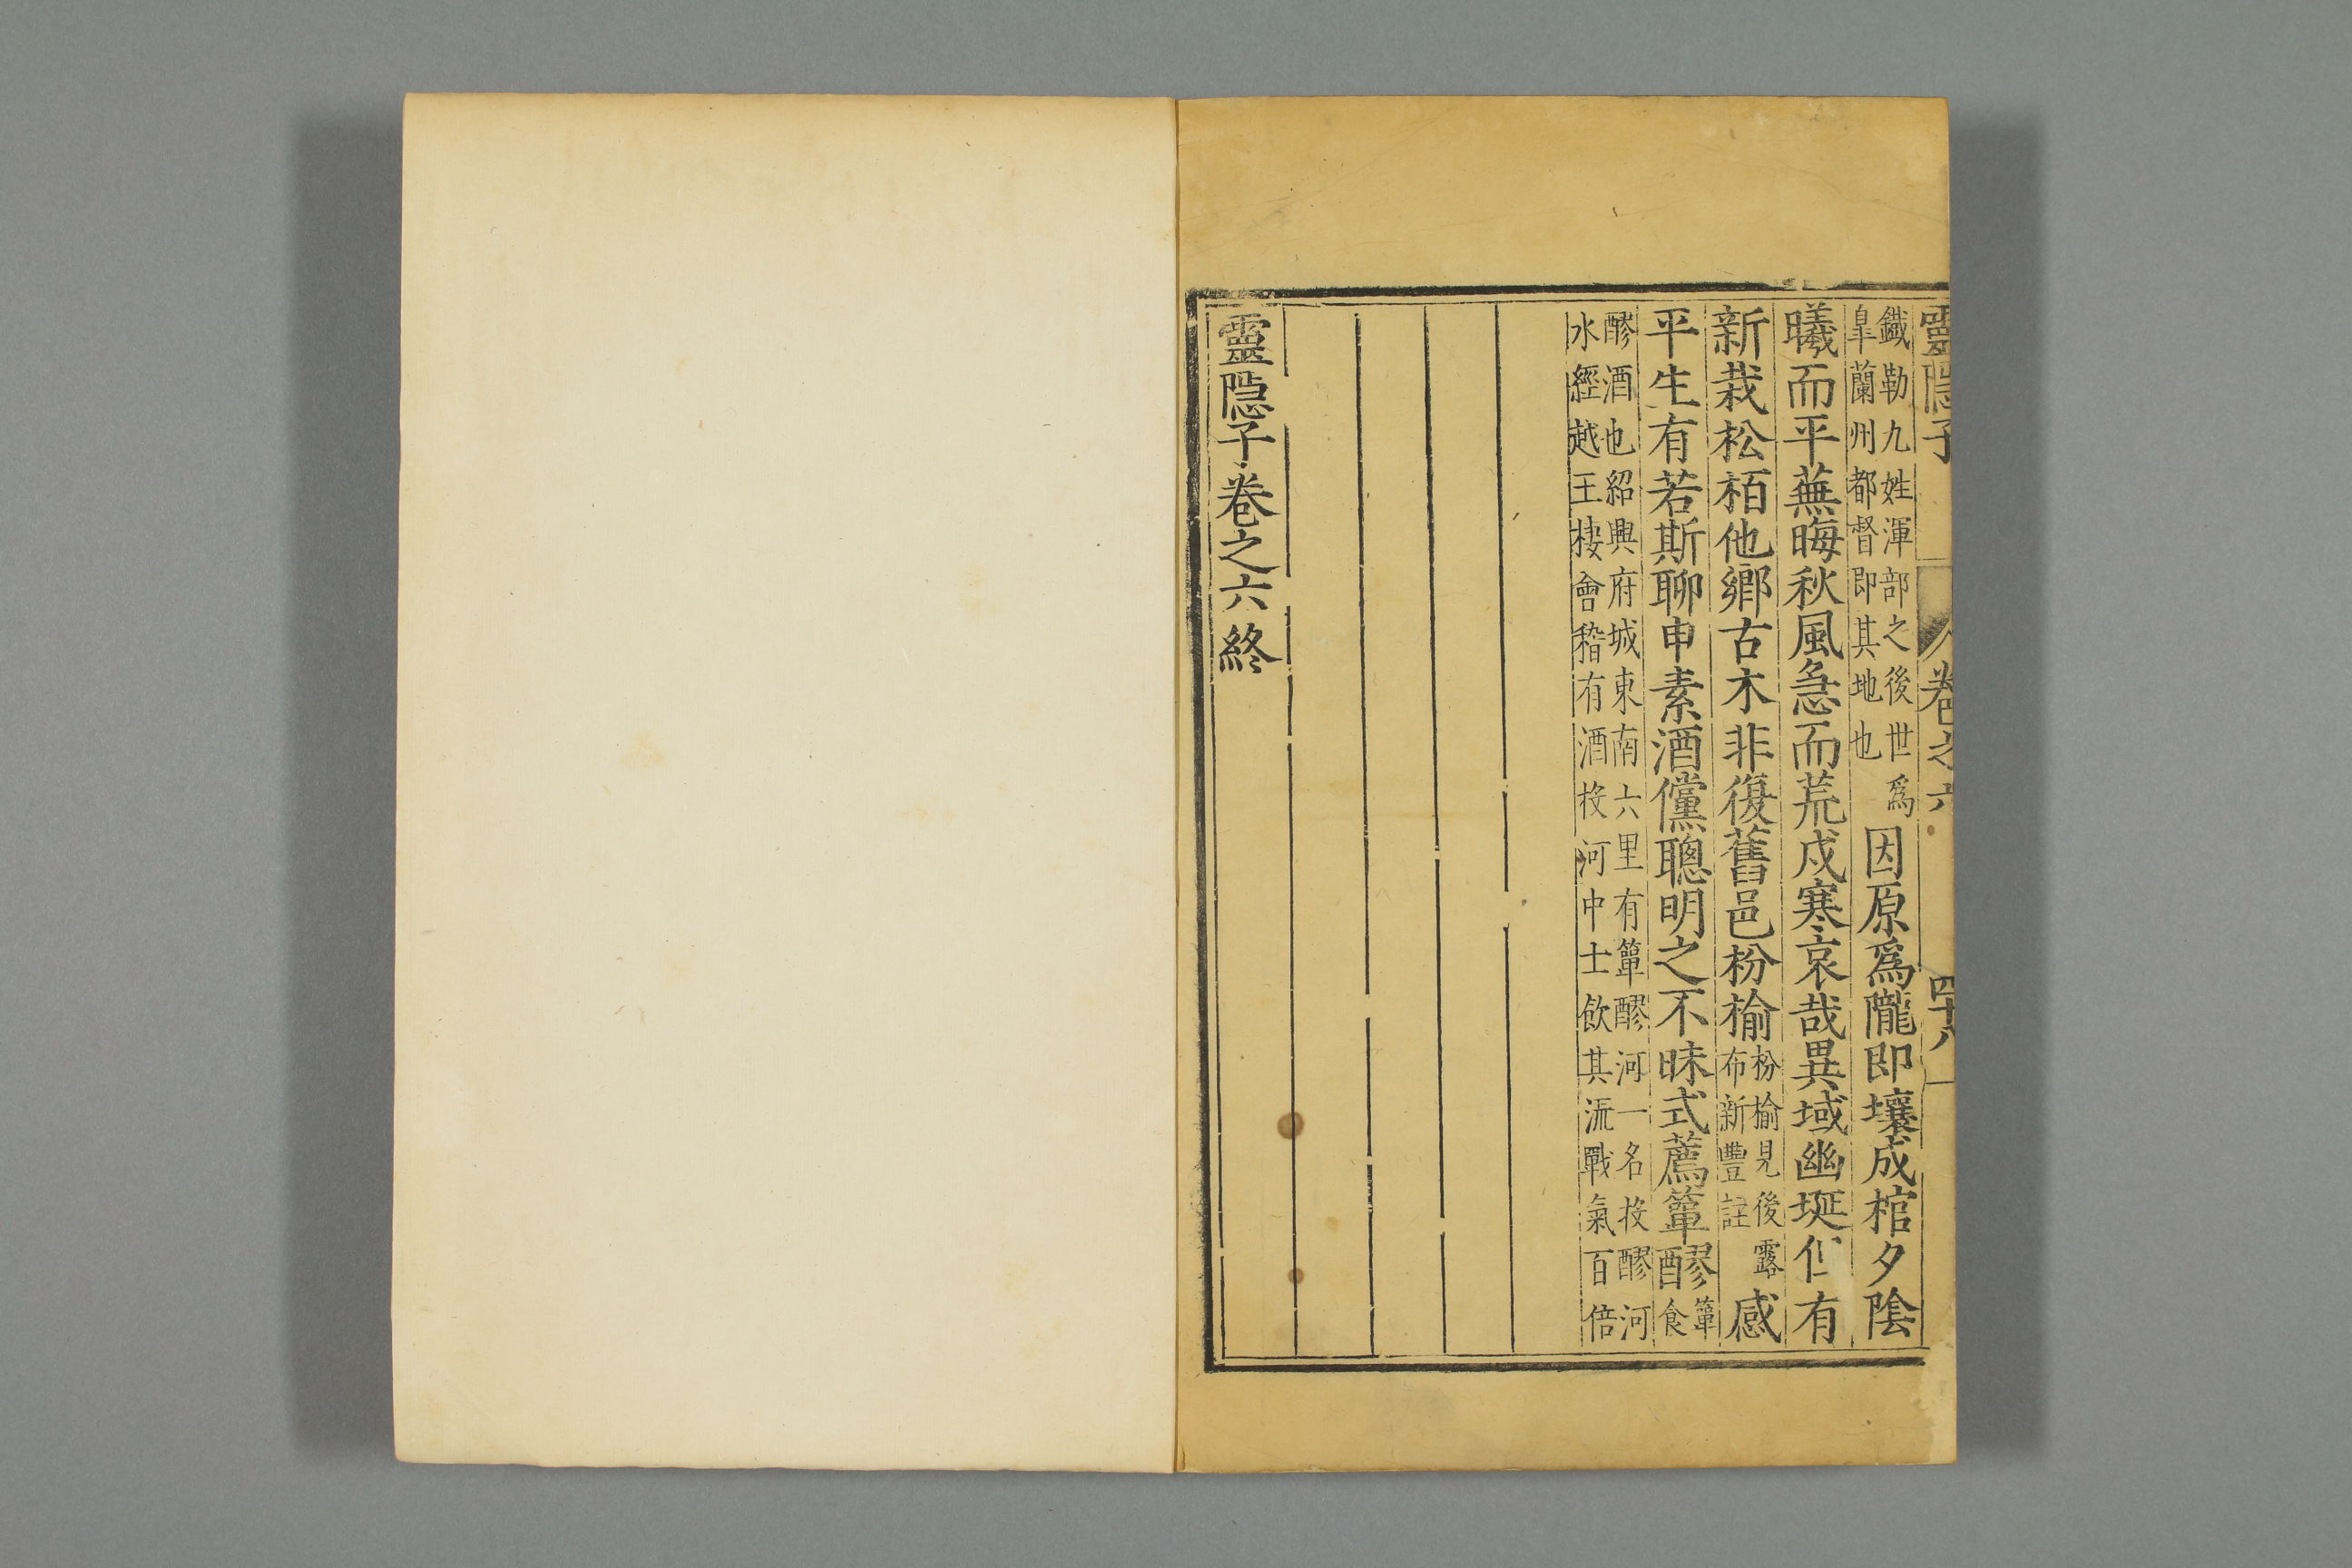 靈隱子 卷之六 四十八
鐵勒九姓渾部之後世爲
皐蘭州都督即其地也
因原爲隴即壤成棺夕陰
曦而平蕪晦秋風急而荒戍寒哀哉異域幽埏有
新栽松栢他鄉古木非復舊邑枌榆
枌榆見後露
布新豐註
感
平生有若斯聊申素酒儻聰明之不昧式薦簞醪
簞
食
醪酒也紹興府城東南六里有簞醪河一名投醪河
水經越王棲會稽有酒投河中士飲其流戰氣百倍
靈隱子卷之六終